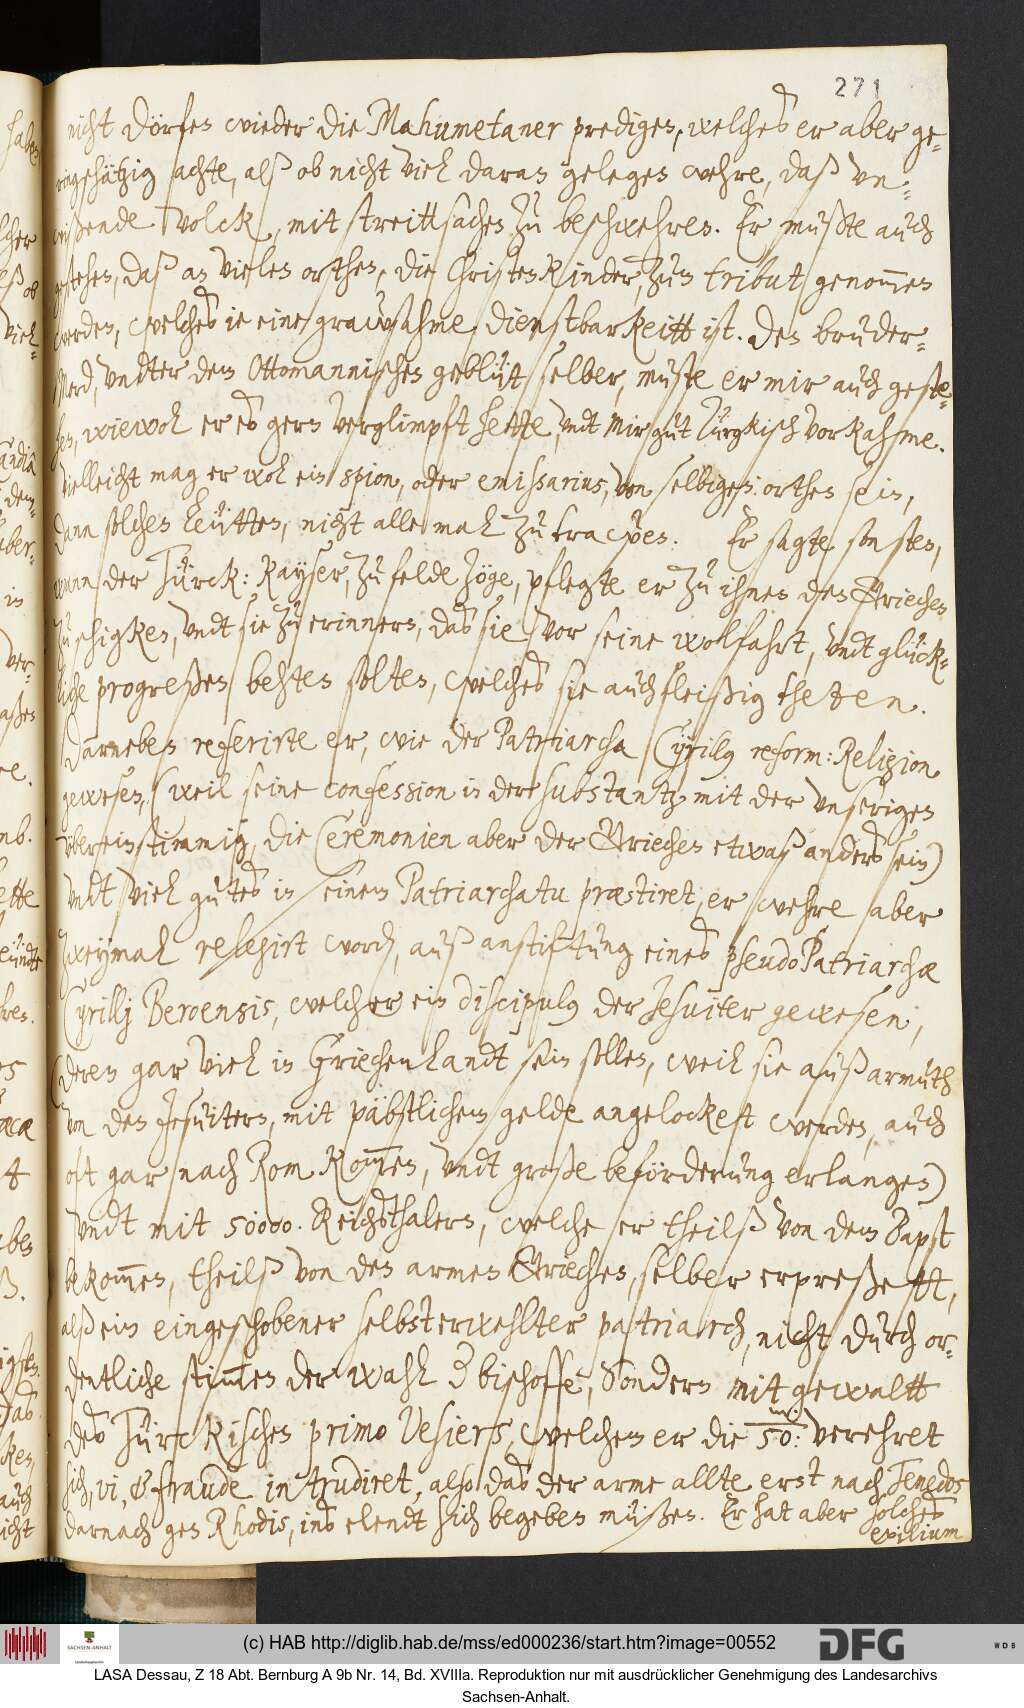 271
nicht dörfen wieder die Mahumetaner predigen, welches er aber ge-
ringschätzig achte, alß ob nicht viel daran gelegen wehre, daß vn-
wißende volck, mit streittsachen zu beschwehren. Er mußte auch
gestehen, daß an vielen orthen, die Christen Kinder, zum tribut genom̄en
werden, welches ie eine grawsahme dienstbarkeitt ist. Den bruder-
Mord, vndter dem Ottomannischen geblüt selber, muste er mir auch geste-
hen, wiewol er es gern verglimpft hette, vndt mir gut Türgkisch vorkahme.
Vielleicht mag er wol ein spion, oder emissarius, von selbigen orthen sein,
dann solchen leütten, nicht allemal zu trawen. Er sagte sonsten,
wann der Türck: Kayser, zu felde zöge, pflegte er zu ihnen den Griechen
zu schigken, vndt sie zu erinnern, das sie vor seine wolfahrt, vndt glück-
liche progreßen behten solten, welches sie auch fleißig theten.
Darneben referirte er, wie der Patriarcha Cyrillus reform: Religion
gewesen, (weil seine confession in der substantz mit der vnserigen
vbereinstimmig, die Ceremonien aber der Griechen etwaß anders sein)
vndt viel gutes in seinem Patriarchatu præstiret, er wehre aber
zweymal relegirt word, auß anstiftung eines pseudoPatriarchæ
Cyrillj Beroensis, welcher ein discipulus der Jesuiter gewesen,
(deren gar viel in Griechenlandt sein sollen, weil sie auß armuth
von den Jesuitern, mit päbstlichem gelde angelocket werden, auch
oft gar nach Rom kom̄en, vndt große beförderung erlangen)
vndt mit 50000. Reichsthalern, welche er theilß von dem Papst
bekom̄en, theilß von den armen Griechen, selber erpreßett,
alß ein eingeschobener selbst erwehlter patriarch, nicht durch or-
dentliche stim̄en der wahl 3 bischoffe, Sondern mit gewaltt
des Türckischen primo Vesiers, welchem er die 50: m. verehret
sich, vi, & fraude intrudiret, also das der arme allte erst nach Tenedos
darnach gen Rhodis, ins elendt sich begeben müßen. Er hat aber solches
exilium
(c) HAB http://diglib.hab.de/mss/ed000236/start.htm?image=00552
SACHSEN-ANHALT
DFG
WDB
LASA Dessau, Z 18 Abt. Bernburg A 9b Nr. 14, Bd. XVIIIa. Reproduktion nur mit ausdrücklicher Genehmigung des Landesarchivs
Sachsen-Anhalt.